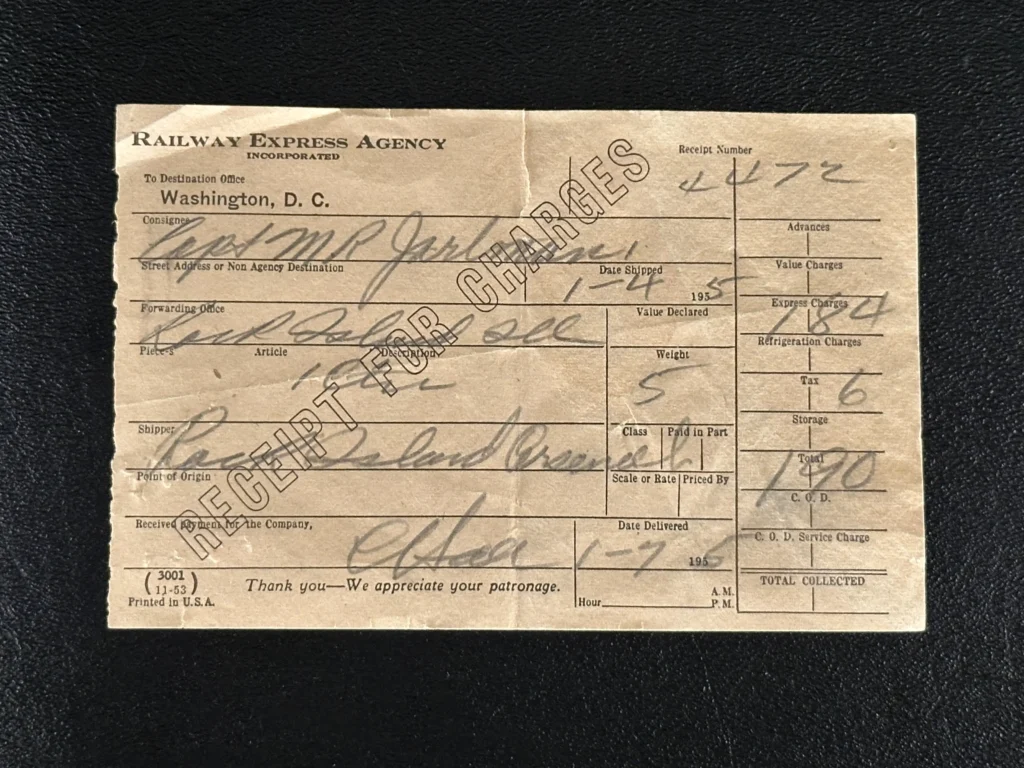 RAILWAY EXPRESS AGENCY
INCORPORATED
Receipt Number
4472
To Destination Office
Washington, D. C.
RECEIPT FOR CHARGES
Consignee
Capt M R
Advances
Street Address or Non Agency Destination
Date Shipped
1-4 1955
Value Charges
Forwarding Office
Rock Island Ill
Value Declared
Express Charges
184
Pieces Article Description
Weight
5
Refrigeration Charges
Tax
6
Shipper
Rock Island Arsenal
Class Paid in Part
Storage
Point of Origin
Scale or Rate Priced By
Total
190
C. O. D.
Received payment for the Company,
Date Delivered
1-7 1955
C. O. D. Service Charge
( 3001 )
11-53
Printed in U.S.A.
Thank you—We appreciate your patronage.
Hour
A.M.
P.M.
TOTAL COLLECTED